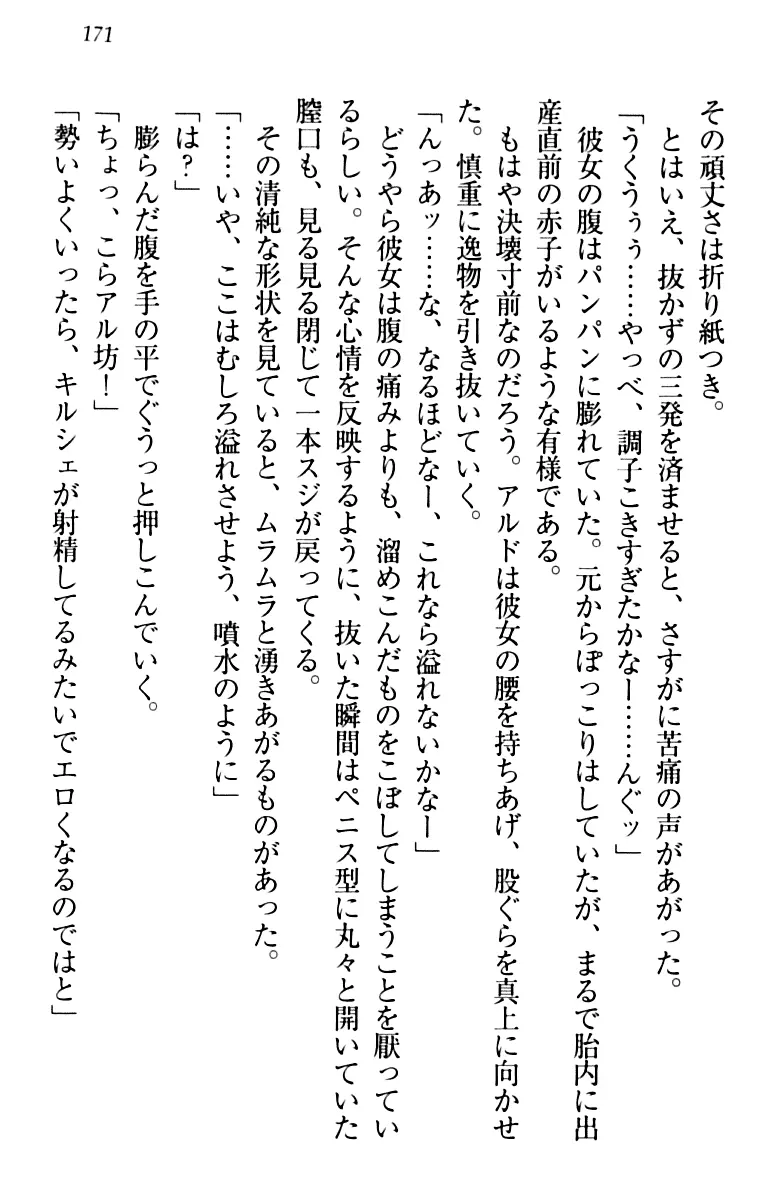 171
その頑丈さは折り紙つき。
とはいえ、抜かずの三発を済ませると、さすがに苦痛の声があがった。
「うくうぅぅ……やっべ、調子こきすぎたかなー……んぐッ」
彼女の腹はパンパンに膨れていた。元からぽっこりはしていたが、まるで胎内に出
産直前の赤子がいるような有様である。
もはや決壊寸前なのだろう。アルドは彼女の腰を持ちあげ、股ぐらを真上に向かせ
た。慎重に逸物を引き抜いていく。
「んっあッ……な、なるほどなー、これなら溢れないかなー」
どうやら彼女は腹の痛みよりも、溜めこんだものをこぼしてしまうことを厭ってい
るらしい。そんな心情を反映するように、抜いた瞬間はペニス型に丸々と開いていた
膣口も、見る見る閉じて一本スジが戻ってくる。
その清純な形状を見ていると、ムラムラと湧きあがるものがあった。
「……いや、ここはむしろ溢れさせよう、噴水のように」
「は？」
膨らんだ腹を手の平でぐうっと押しこんでいく。
「ちょっ、こらアル坊！」
「勢いよくいったら、キルシェが射精してるみたいでエロくなるのではと」